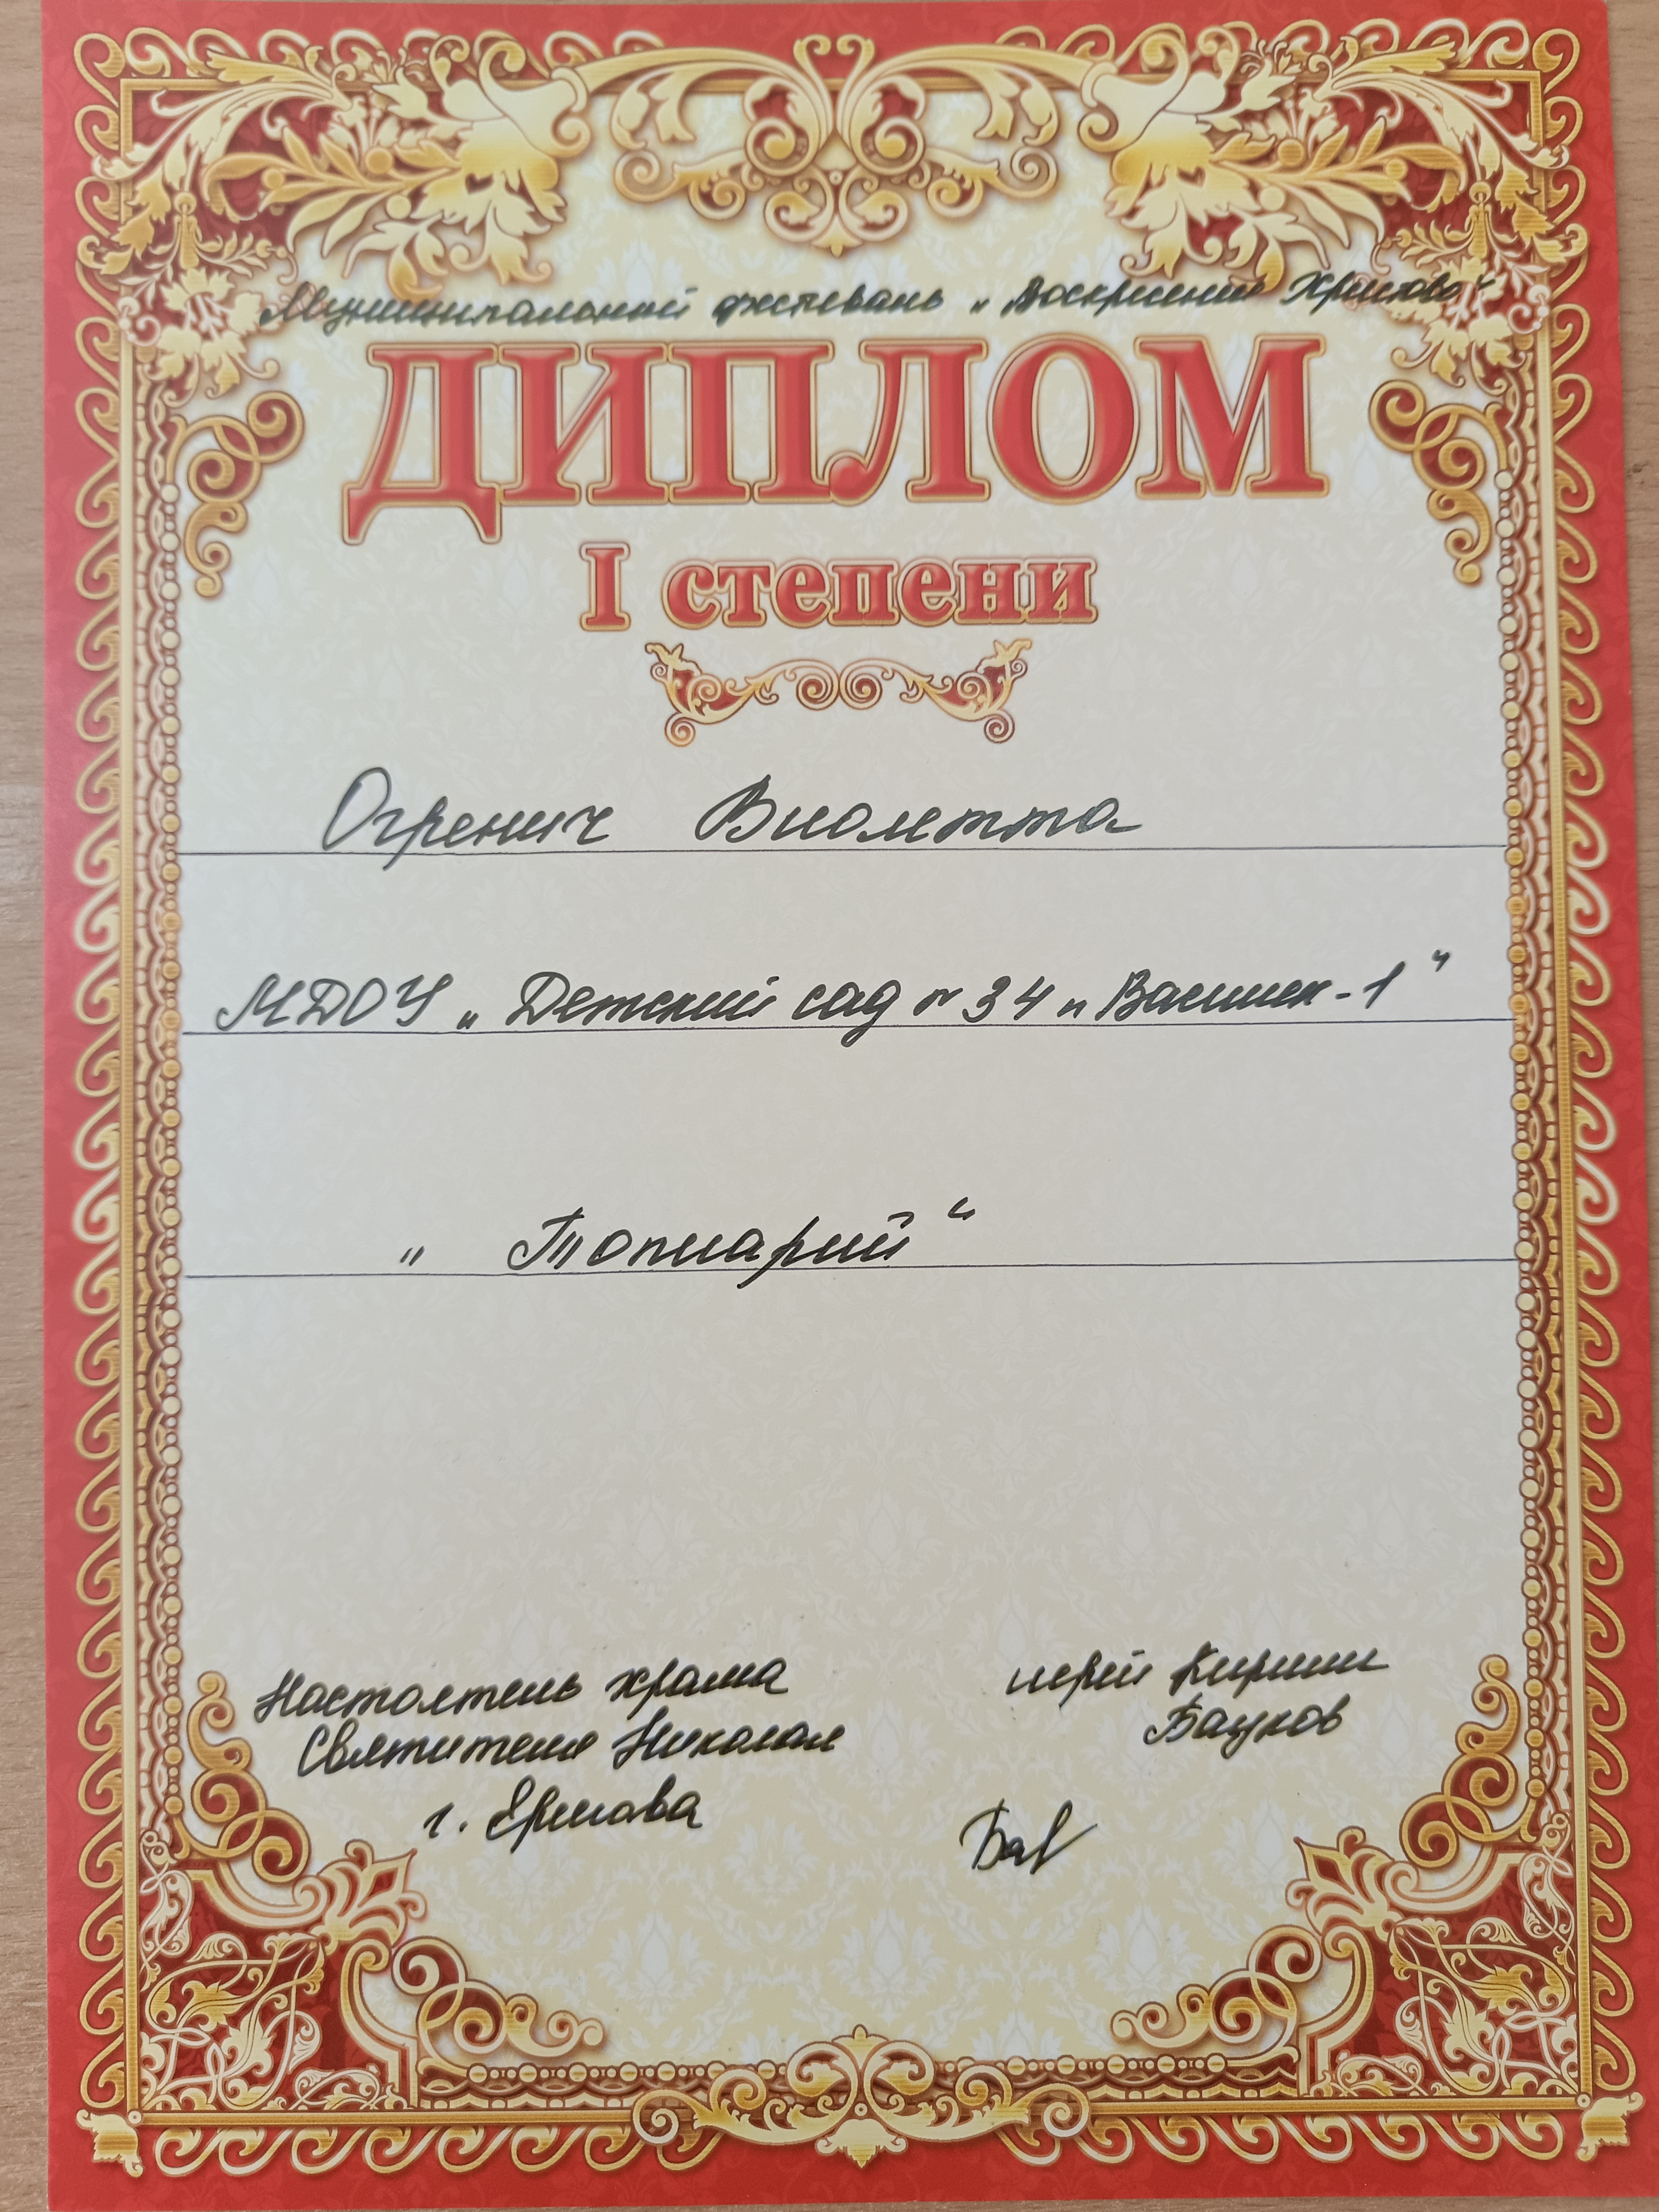 Муниципальный фестиваль „Воскресение Христово"
ДИПЛОМ
I степени
Огренич Виолетта
МДОУ „Детский сад № 34 „Василек-1"
„Топиарий"
Настоятель храма
Святителя Николая
г. Ершова
иерей Кирилл
Бауков